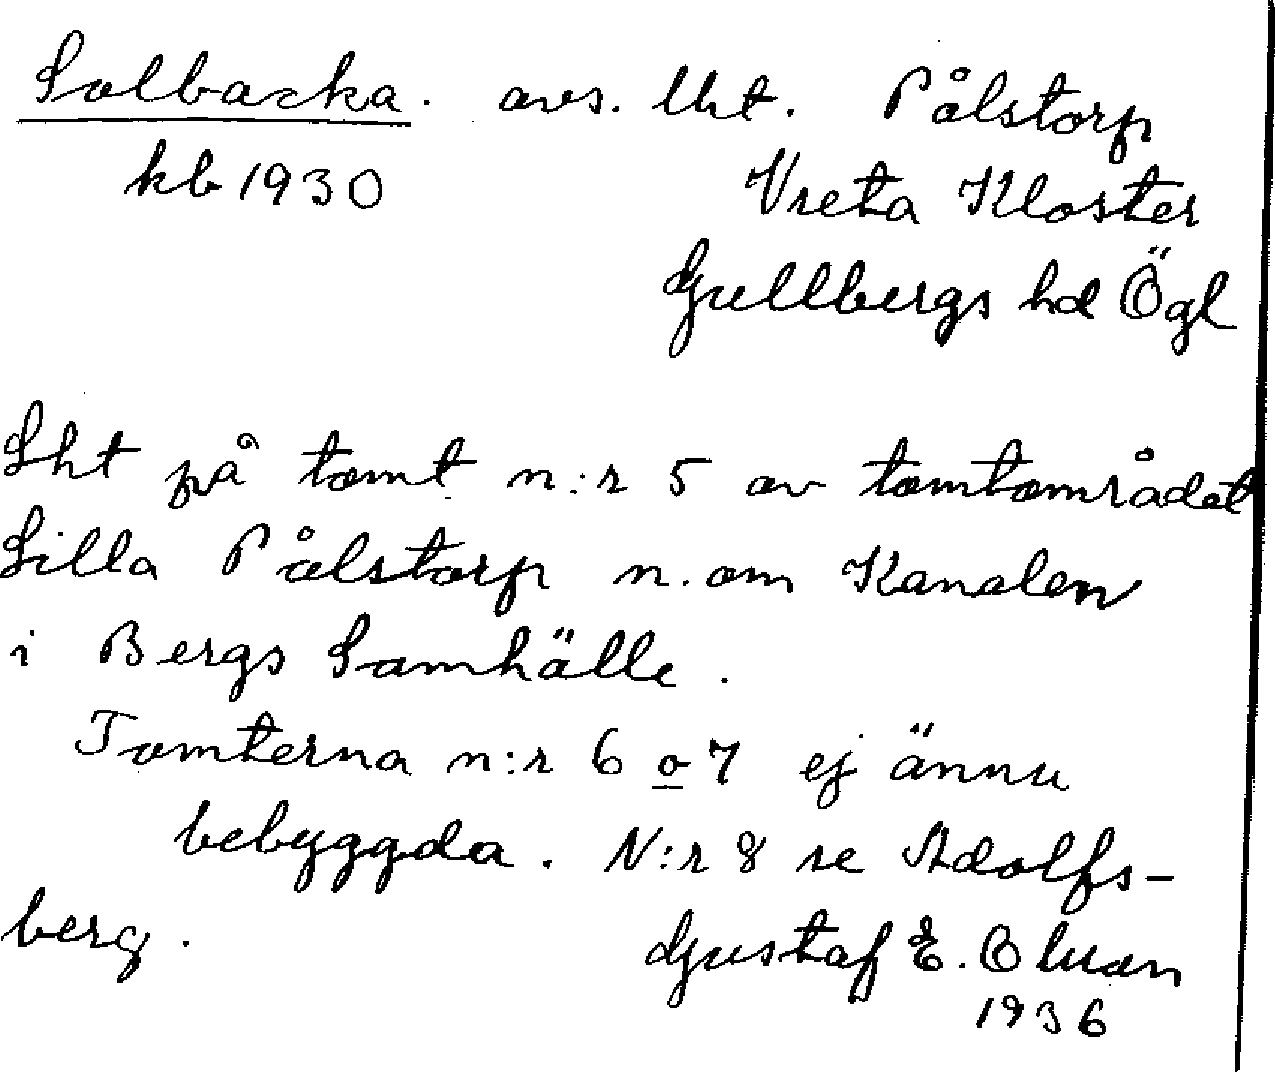 Solbacka. avs. lht. Pålstorp
kb 1930 Vreta Kloster
Gullbergs hd Ögl
Lht på tomt n:r 5 av tomtområdet
Lilla Pålstorp n. om Kanalen
i Bergs Samhälle.
Tomterna n:r 6 o 7 ej ännu
bebyggda. N:r 8 se Adolfs-
berg. Gustaf E.
1936